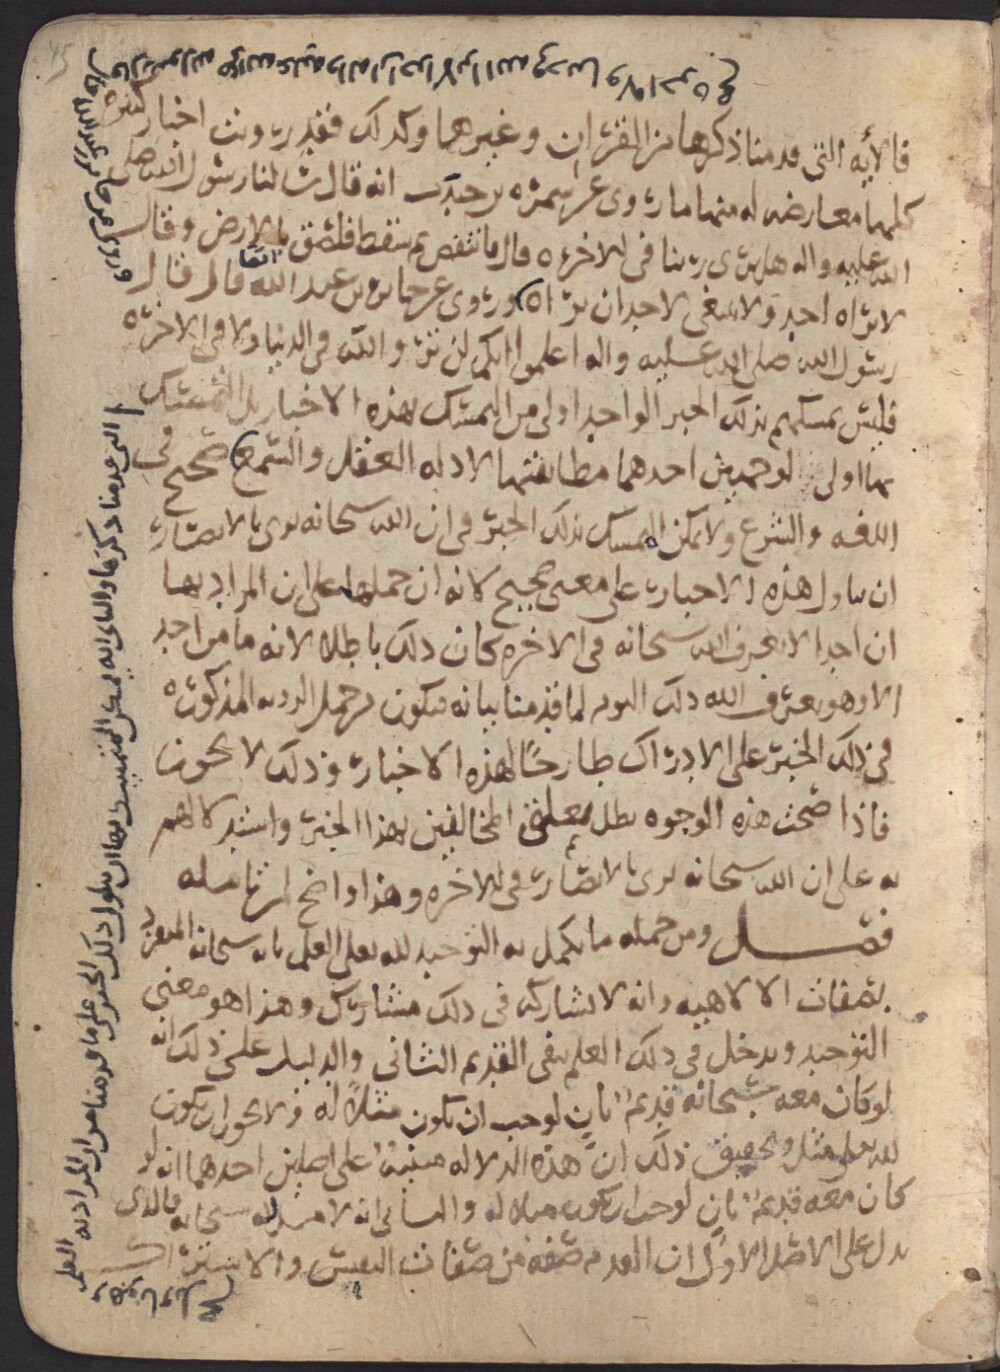 فالأيه التى قدمنا ذكرها من القرءان وغيرهما وكذلك فقد رويت اخبار كثيره
كلها معارضه له منها ما روى عن سمره بن جندب انه قال سالنا رسول الله صلى
الله عليه واله هل نرى ربنا فى الاخره قال فانتفض ثم سقط فلصق بالارض وقال
لا يراه احد ولا ينبغى لاحد ان يراه وروى عن جابر بن عبد الله ايضا قال قال
رسول الله صلى الله عليه واله اعلموا انكم لن تروا الله فى الدنيا ولا فى الاخره
فليس تمسكهم بذلك الخبر الواحد اولى من التمسك بهذه الاخبار بل التمسك
بها اولى لوجهين احدهما مطابقتها لادله العقل والسمع صحيح فى
اللغه والشرع ولا يمكن التمسك بذلك الخبر فى ان الله سبحانه يرى بالابصار
ان يتاول هذه الاخبار على معنى صحيح لانه ان حملها على ان المراد بها
ان احدا لا يعرف الله سبحانه فى الاخره كان ذلك باطلا لانه ما من احد
الا وهو يعرف الله ذلك اليوم لما قدمنا بيانه فيكون من حمل الرويه المذكوره
فى ذلك الخبر على الادراك طارحا لهذه الاخبار وذلك لا يجوز
فاذا صحت هذه الوجوه بطل تعلق المخالفين بهذا الخبر واستدلالهم
به على ان الله سبحانه يرى بالابصار فى الاخره وهذا واضح لمن تامله
فصل ومن جمله ما يكمل به التوحيد لله تعلى العلم بانه سبحانه المتفرد
بصفات الالاهيه وانه لا يشاركه فى ذلك مشارك وهذا هو معنى
التوحيد ويدخل فى ذلك العلم بنفى القديم الثانى والدليل على ذلك انه
لو كان معه سبحانه قديم ثان لوجب ان يكون مثلا له ولا يجوز ان يكون
لله تعلى مثل وتحقيق ذلك ان هذه الدلاله مبنيه على اصلين احدهما انه لو
كان معه قديم ثان لوجب ان يكون مثلا له والثانى انه لا مثل له سبحانه فالذى
يدل على الاصل الاول ان القدم صفه من صفات النفس والاشتراك
التى قدمنا ذكرها والثانى انه يمكن المتمسك بها ان يتاول ذلك الخبر على ما قدمنا من ان المراد به العلم